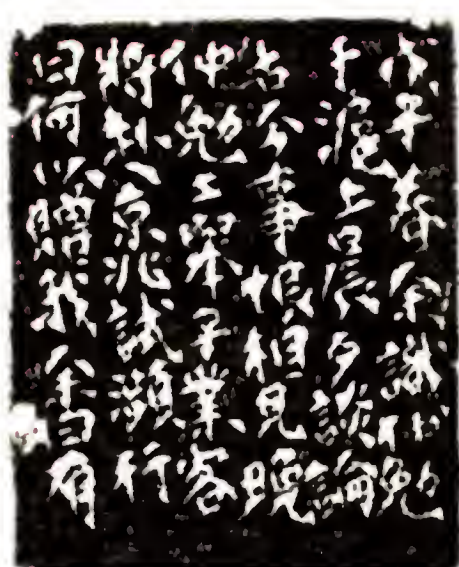 戊子春余識仲勉
于滬上晨夕談論
古今事恨相見晚
仲勉工舉子業客
將赴京兆試瀕行
曰何以贈我余有